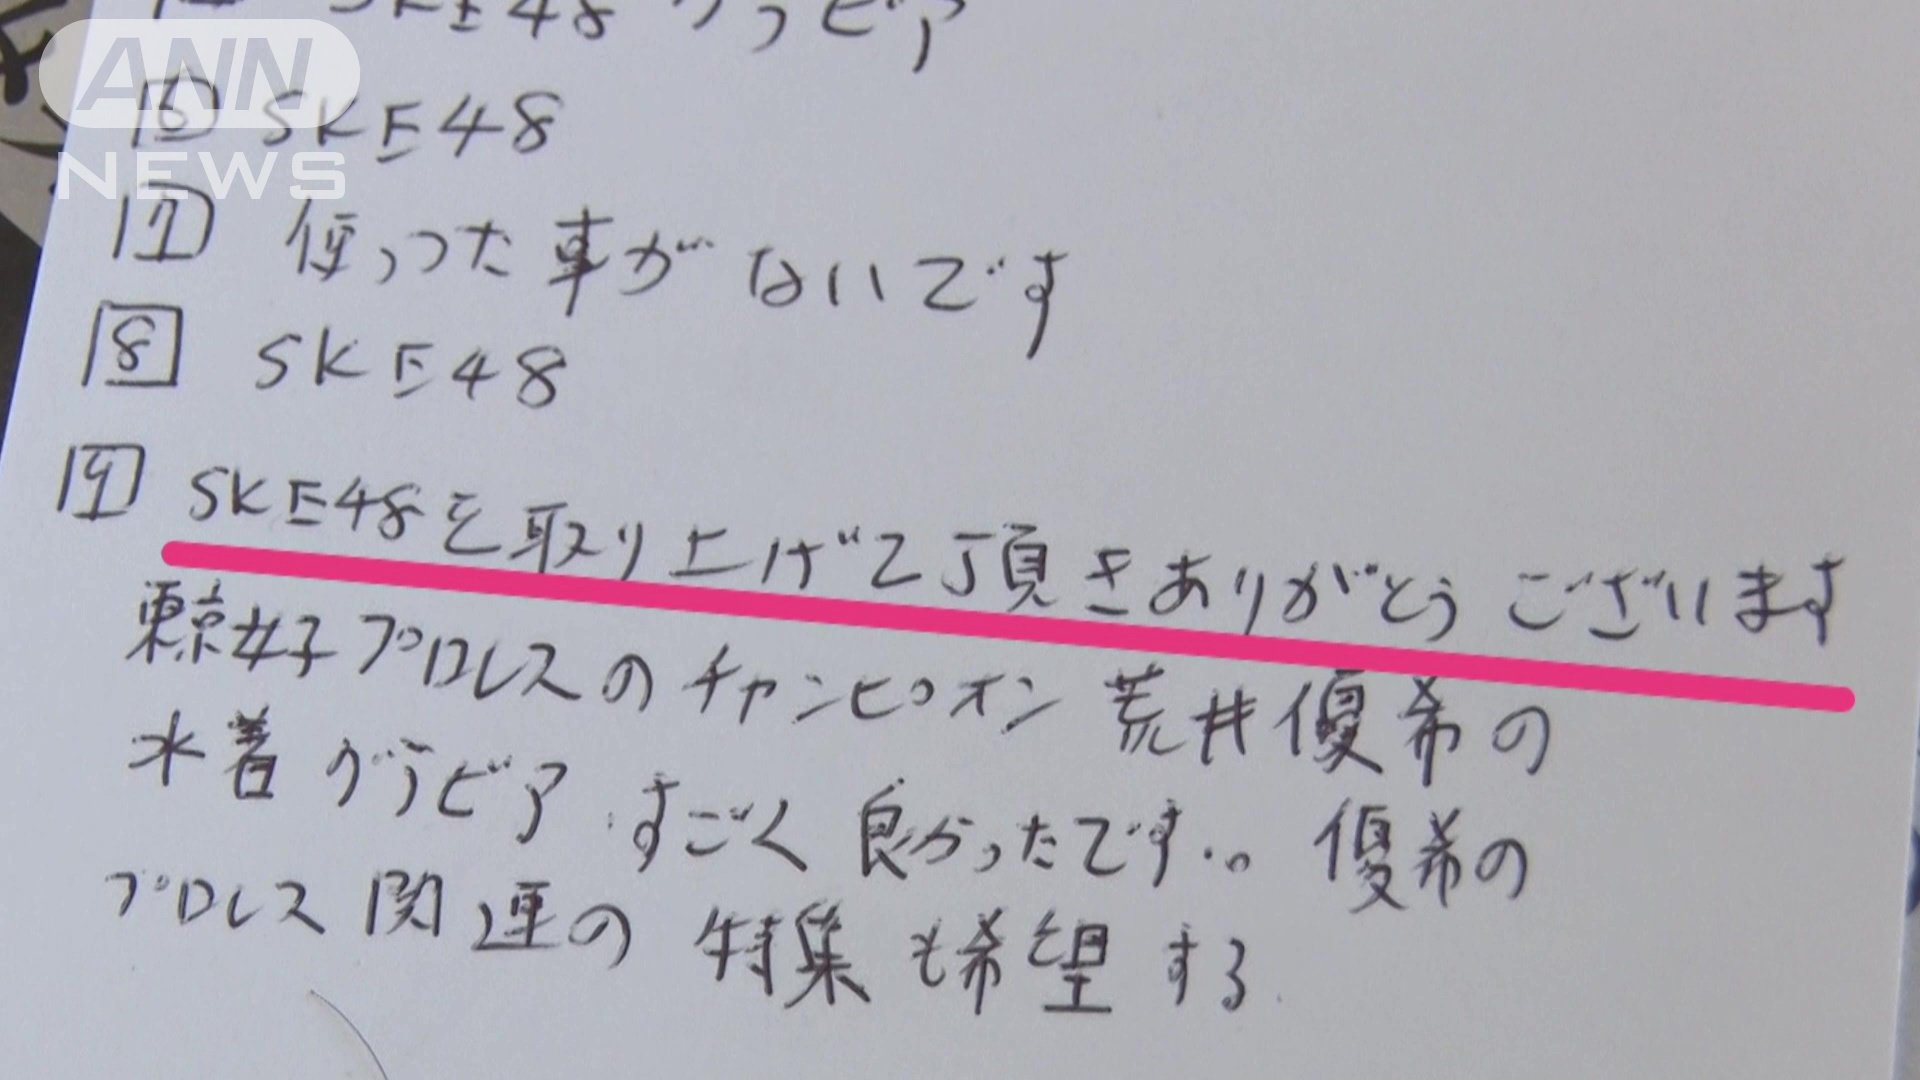 SKE48 グラビア
ANN
NEWS
6 SKE48
7 使った事がないです
8 SKE48
9 SKE48を取り上げて頂きありがとうございます
東京女子プロレスのチャンピオン荒井優希の
水着グラビア すごく良かったです。優希の
プロレス関連の特集も希望する